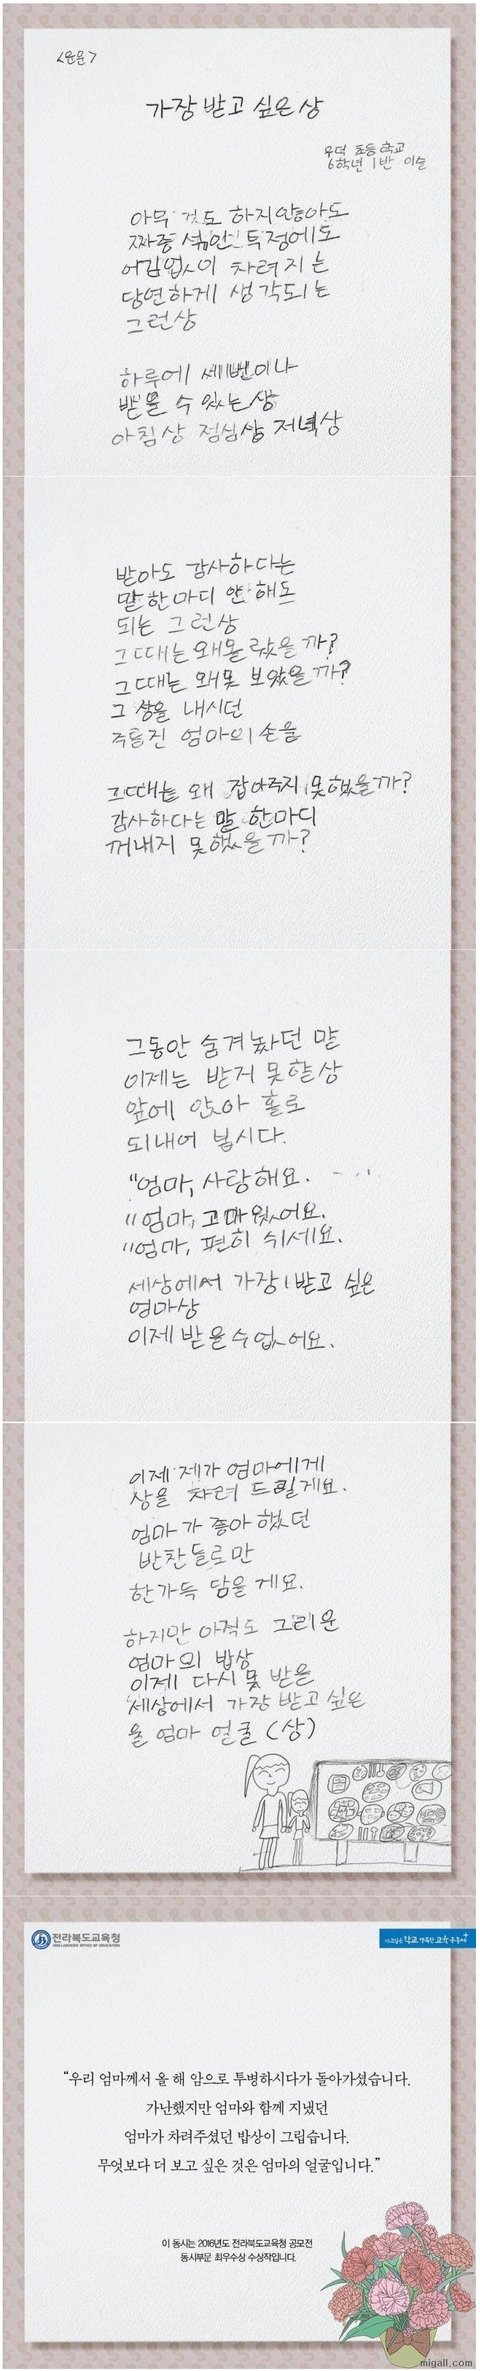 <운문>
가장 받고 싶은 상
우덕 초등학교
6학년 1반 이슬
아무 것도 하지않아도
짜증 섞인 투정에도
어김없이 차려지는
당연하게 생각되는
그런상
하루에 세번이나
받을 수 있는상
아침상 점심상 저녁상
받아도 감사하다는
말 한마디 안 해도
되는 그런상
그때는 왜 몰랐을까?
그때는 왜 못 보았을까?
그 상을 내시던
주름진 엄마의 손을
그때는 왜 잡아주지 못했을까?
감사하다는 말 한마디
꺼내지 못했을까?
그동안 숨겨놨던 말
이제는 받지 못할상
앞에 앉아 홀로
되내어 봅시다.
"엄마, 사랑해요.
"엄마, 고마웠어요.
"엄마, 편히 쉬세요.
세상에서 가장 받고 싶은
엄마상
이제 받을수없어요.
이제 제가 엄마에게
상을 차려 드릴게요.
엄마가 좋아했던
반찬들로만
한가득 담을게요.
하지만 아직도 그리운
엄마의 밥상
이제 다시 못 받을
세상에서 가장 받고 싶은
울 엄마 얼굴 (상)
전라북도교육청
JEOLLABUKDO OFFICE OF EDUCATION
가고싶은 학교 행복한 교육공동체
"우리 엄마께서 올 해 암으로 투병하시다가 돌아가셨습니다.
가난했지만 엄마와 함께 지냈던
엄마가 차려주셨던 밥상이 그립습니다.
무엇보다 더 보고 싶은 것은 엄마의 얼굴입니다."
이 동시는 2016년도 전라북도교육청 공모전
동시부문 최우수상 수상작입니다.
migall.com